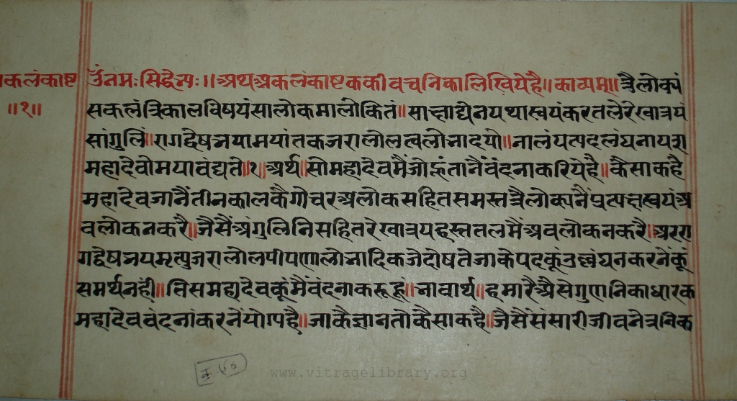 अकलंकाष्ट
॥१॥
उँनमःसिद्धेभ्यः॥अथअकलंकाष्टककीवचनिकालिखियेहै॥काव्यम्॥त्रैलोक्यं
सकलंत्रिकालविषयंसालोकमालोकितं॥साक्षाद्येनयथास्वयंकरतलेरेखात्रयं
सांगुलिं॥रागद्वेषभयामयांतकजरालोलत्वलोभादयो॥नालंयत्पदलंघनायस
महादेवोमयावंद्यते॥१॥अर्थ॥सोमहादेवमैंजोहूंतानैंवंदनाकरियेहै॥कैसाकहै
महादेवजानैंतीनकालकैगोचरअलोकसहितसमस्तत्रैलोक्यनैंप्रत्यक्षस्वयंअ
वलोकनकरै॥जैसैंअंगुलिनिसहितरेखात्रयहस्ततलमैंअवलोकनकरै॥अररा
गद्वेषभयमृत्युजरालोलपीपणालोभादिकजेदोषतेजाकेपदकूंउल्लंघनकरनेंकूं
समर्थनहीं॥तिसमहादेवकूंमैंवंदनाकरूहूं॥भावार्थ॥हमारैअैसेगुणनिकाधारक
महादेववंदनांकरनेंयोग्यहै॥जाकैज्ञानतोकैसाकहै॥जैसैंसंसारीजीवनेत्रनिक
www.vitragelibrary.org